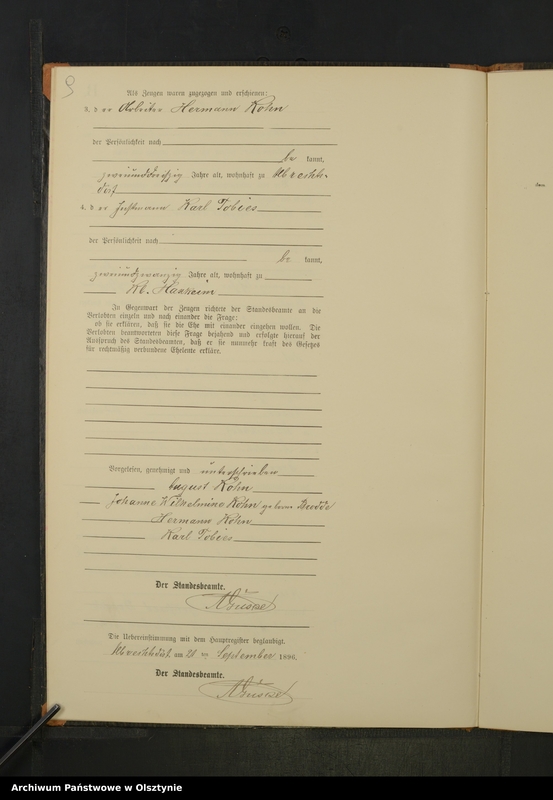 9
Als Zeugen waren zugezogen und erschienen:
3. d er Arbeiter Hermann Kohn
der Persönlichkeit nach
be kannt,
zweiunddreißig Jahre alt, wohnhaft zu
dorf
4. d er Instmann Karl Tobies
der Persönlichkeit nach
be kannt,
zweiundzwanzig Jahre alt, wohnhaft zu
In Gegenwart der Zeugen richtete der Standesbeamte an die
Verlobten einzeln und nach einander die Frage:
ob sie erklären, daß sie die Ehe mit einander eingehen wollen. Die
Verlobten beantworteten diese Frage bejahend und erfolgte hierauf der
Ausspruch des Standesbeamten, daß er sie nunmehr kraft des Gesetzes
für rechtmäßig verbundene Eheleute erkläre.
Vorgelesen, genehmigt und unterschrieben
August Kohn
Johanne Wilhelmine Kohn geborne
Hermann Kohn
Karl Tobies
Der Standesbeamte.
Die Uebereinstimmung mit dem Hauptregister beglaubigt.
am September 1896.
Der Standesbeamte.
Archiwum Państwowe w Olsztynie